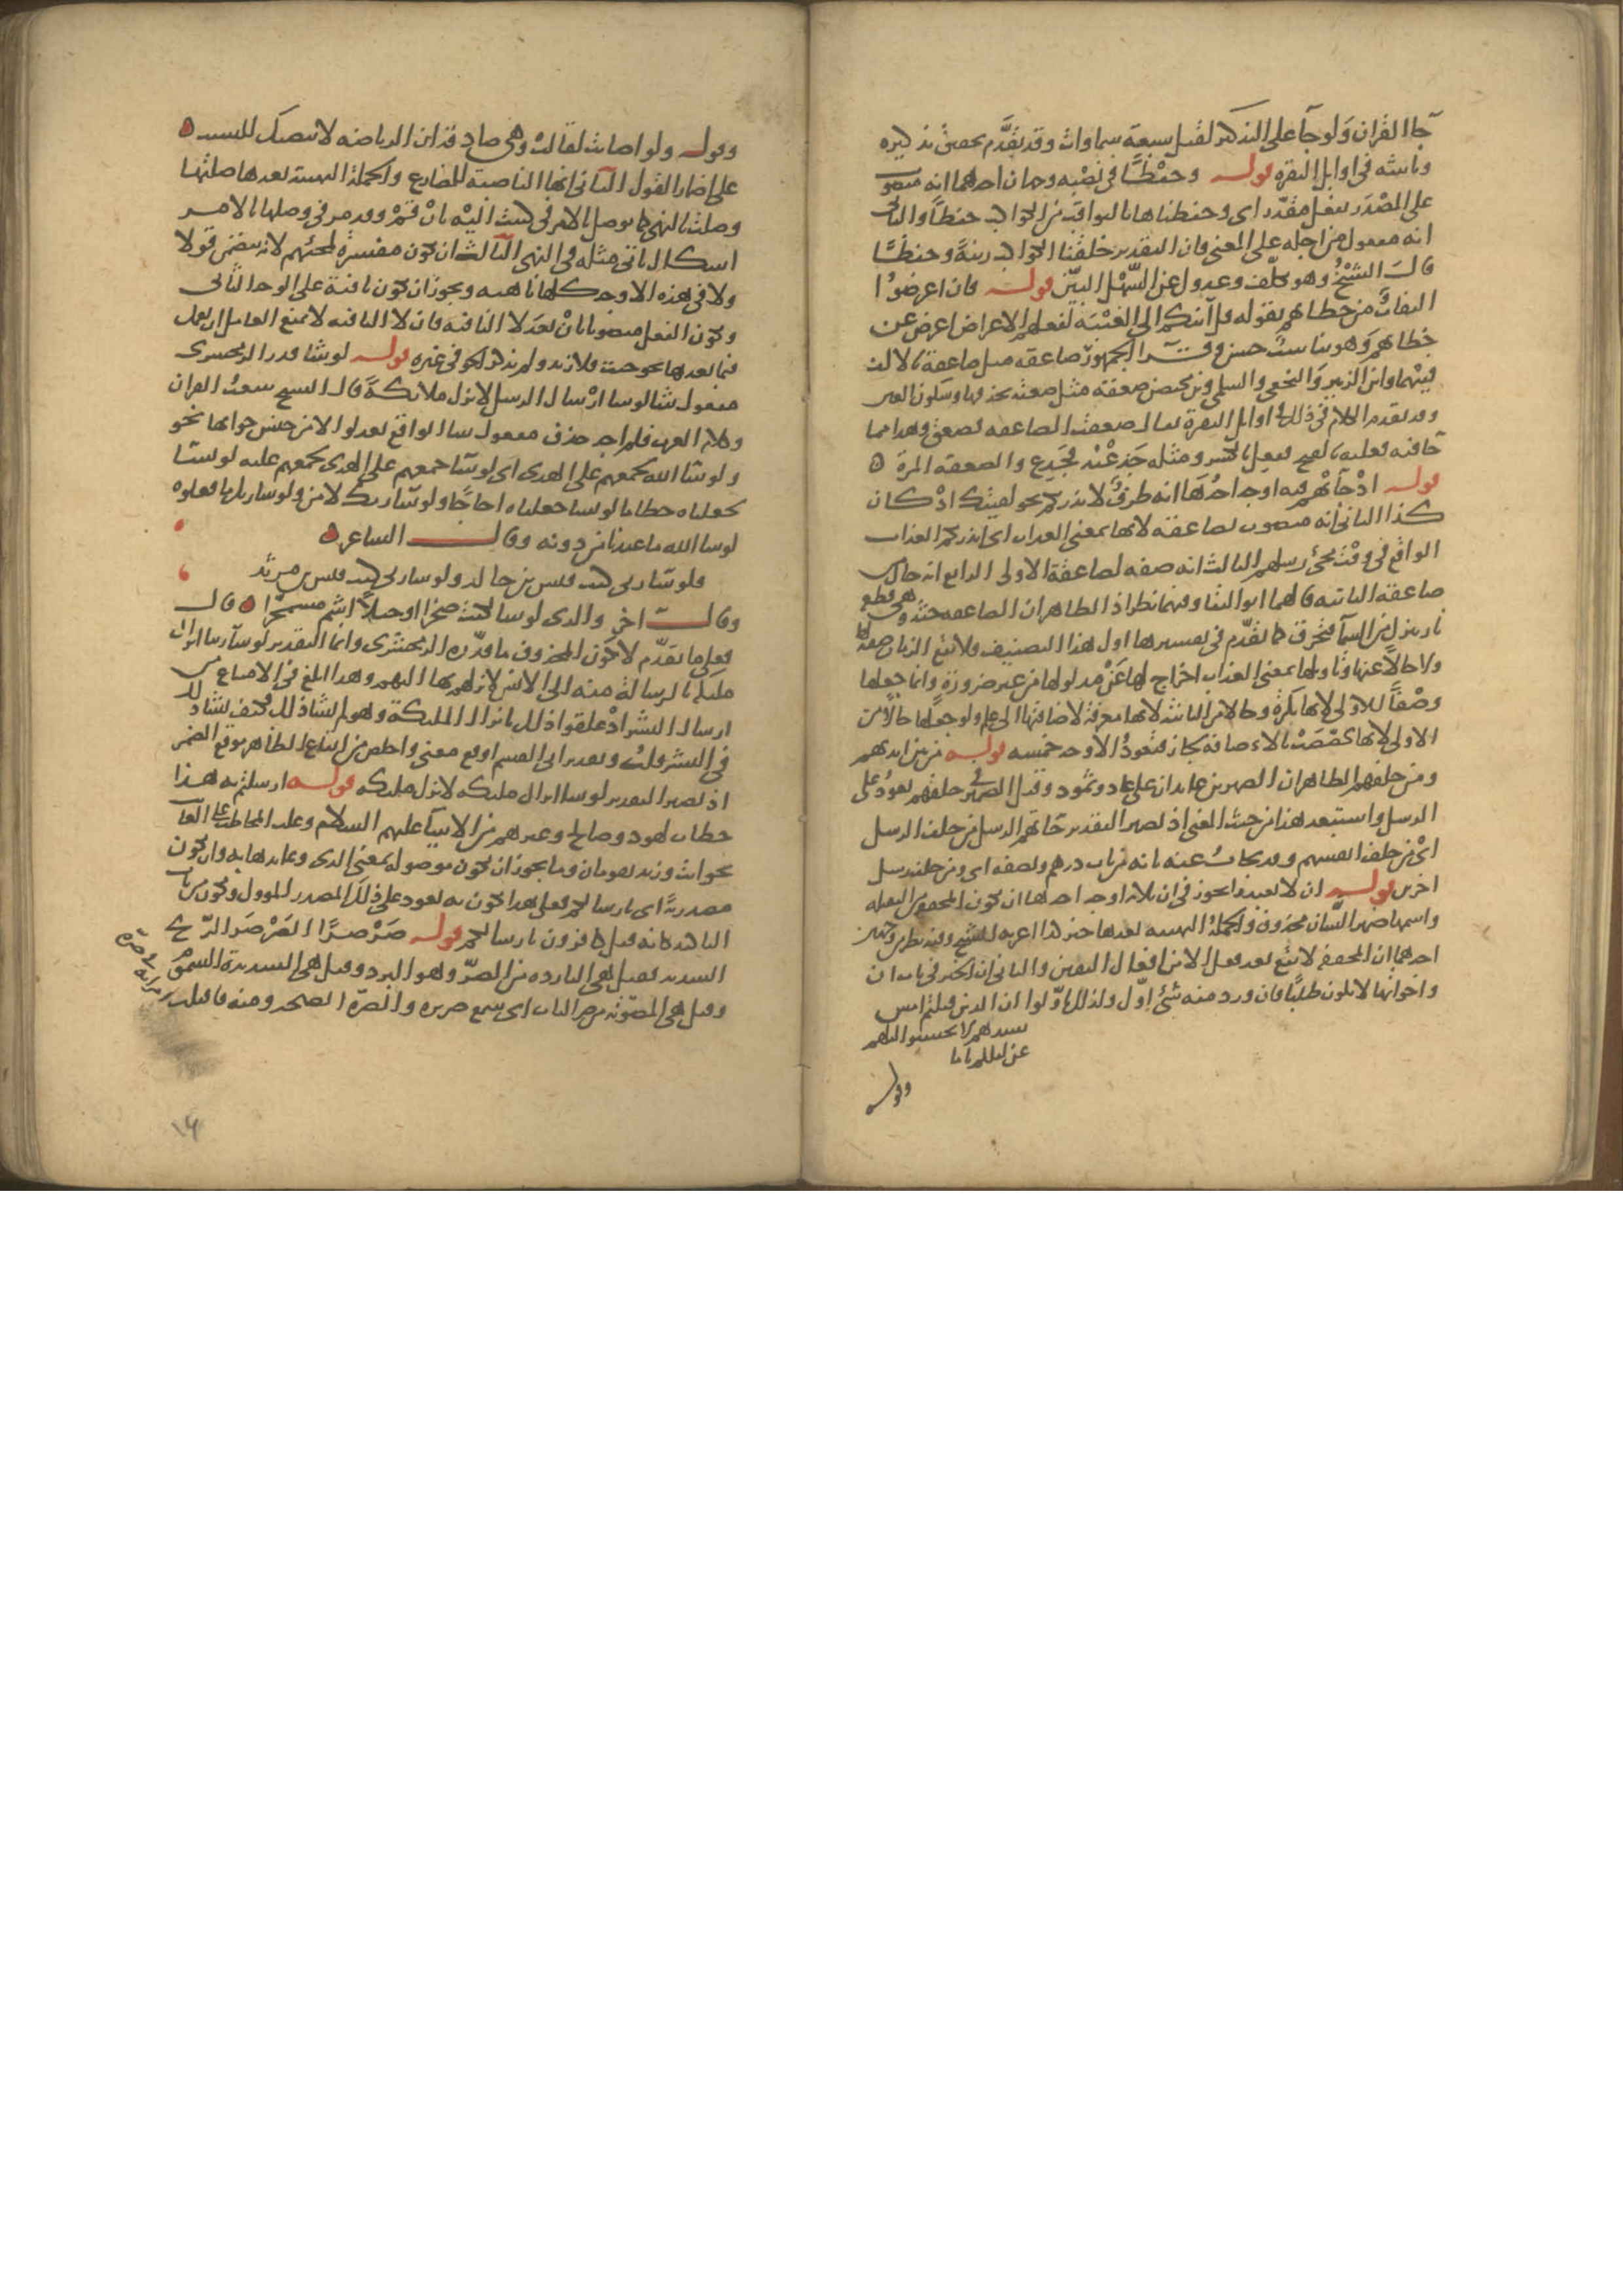 جاء القران ولو جاء على التذكير لقيل سبعة سماوات وقد تقدم تحقيق تذكيره
وتانيثه في اوايل البقرة قوله وحفظا في نصبه وجهان احدهما انه منصوب
على المصدر بفعل مقدر اي وحفظناها بالثواقب من الكواكب حفظا والثاني
انه مفعول من اجله على المعنى فان التقدير خلقنا الكواكب زينة وحفظا
قال الشيخ وهو تكلف وعدول عن السهل البين قوله فان اعرضوا
التفات من خطابهم بقوله قل آئنكم الى الغيبة لفعلهم الاعراض اعرض عن
خطابهم وهو تناسب حسن وقرا الجمهور صاعقة مثل صاعقة بالالف
فيهما وابن الزبير والنخعي والسلمي وابن محيصن صعقة مثل صعقة بحذفها وسكون العين
وقد تقدم الكلام في ذلك في اوايل البقرة يقال صعقت الصاعقة فصعق وهذا مما
جا فيه فعلته بالفتح ففعل بالكسر ومثله جدعته فجدع والصعقة المرة
قوله اذ جاتهم فيه اوجه احدها انه ظرف لانذرتكم نحو لقيتك اذ كان
كذا الثاني انه منصوب بصاعقة لانها بمعنى العذاب اي انذرتكم العذاب
الواقع في وقت مجئ رسلهم الثالث انه صفة لصاعقة الاولى الرابع انه حال من
صاعقة الثانية قالهما ابو البقا وفيهما نظر اذ الظاهر ان الصاعقة جثة وهي قطعة
نار تنزل من السما فتحرق كما تقدم في تفسيرها اول هذا التصنيف فلا يقع الزمان صفة لها
ولا حالا عنها وتاويلها بمعنى العذاب اخراج لها عن مدلولها من غير ضرورة وانما جعلها
وصفا للاولى لانها نكرة وحالا من الثانية لانها معرفة لاضافتها الى علم ولو جعلها حالا من
الاولى لانها تخصصت بالاضافة لجاز فتعود الاوجه خمسة قوله من بين ايديهم
ومن خلفهم الظاهر ان الضميرين عايدان على عاد وثمود وقيل الضمير في خلفهم يعود على
الرسل واستبعد هذا من حيث المعنى اذ يصير التقدير جاتهم الرسل من خلف الرسل
اي من خلف انفسهم وقد يجاب عنه بانه من باب درهم ونصفه اي ومن خلف رسل
اخرين قوله ان لا تعبدوا يجوز في ان ثلاثة اوجه احدها ان تكون المخففة من الثقيلة
واسمها ضمير الشان محذوف والجملة النهيية بعدها خبر كذا اعربه الشيخ وفيه نظر من وجهين
احدهما ان المخففة لا تقع بعد فعل الا من افعال اليقين والثاني ان الخبر في باب ان
واخواتها لا يكون طلبا فان ورد منه شئ اول ولذلك اولوا ان الذين قتلتم امس
سيدهم لا تحسبوا ليلهم
عن ليلكم ناما
وقوله
وقوله ولو اصابت لقالت وهي صادقة ان الرياضة لا تنصبك للشيب
على اضمار القول الثاني انها الناصبة للمضارع والجملة النهيية بعدها صلتها
وصلت بالنهي كما توصل بالامر في كتبت اليه بان قم وقد مر في وصلها بالامر
اشكال ياتي مثله في النهي الثالث ان تكون مفسرة لمجئهم لانه يتضمن قولا
ولا في هذه الاوجه كلها ناهية ويجوز ان تكون نافية على الوجه الثاني
ويكون الفعل منصوبا بان بعد لا النافية فان لا النافية لا تمنع العامل ان يعمل
فيما بعدها نحو جئت بلا زيد ولم يذكر الحوفي غيره قوله لو شا قدر الزمخشري
مفعول شا لو شا ارسال الرسل لانزل ملائكة قال الشيخ تتبعت القران
وكلام العرب فلم اجد حذف مفعول شا الواقع بعد لو الا من جنس جوابها نحو
ولو شا الله لجمعهم على الهدى اي لو شا جمعهم على الهدى لجمعهم عليه لو نشا
لجعلناه حطاما لو نشا جعلناه اجاجا ولو شا ربك لامن ولو شا ربك ما فعلوه
لو شا الله ما عبدنا من دونه وقال الشاعر
فلو شا ربي كنت قيس بن خالد ولو شا ربي كنت قيس بن مرثد
وقال اخر والذي لو شا لكنت صخرا او جبلا اشم مشمخرا قال
فعلى ما تقدم لا يكون المحذوف ما قدره الزمخشري وانما التقدير لو شا ربنا انزال
ملئكة بالرسالة منه الى الانس لانزلهم بها اليهم وهذا ابلغ في الامتناع من
ارسال البشر اذ علقوا ذلك بانزال الملئكة وهو لم يشا ذلك فكيف يشا ذلك
في البشر قلت وتقدير ابي القسم اوقع معنى واخلص من ايقاع الظاهر موقع المضمر
اذ يصير التقدير لو شا انزال ملئكة لانزل ملئكة قوله ارسلتم به هذا
خطاب لهود وصالح وغيرهم من الانبيا عليهم السلام وغلب المخاطب على الغايب
نحو انت وزيد تقومان وما يجوز ان تكون موصولة بمعنى الذي وعايدها به وان تكون
مصدرية اي بارسالكم فعلى هذا يكون به يعود على ذلك المصدر المؤول ويكون من باب
التاكيد كانه قيل كافرون بارسالكم قوله صرصرا الصرصر الريح
الشديدة فقيل هي الباردة من الصر وهو البرد وقيل هي الشديدة السموم
وقيل هي المصوتة من صر الباب اي سمع صريره والصرة الصيحة ومنه فاقبلت
امراته في صرة
١٤